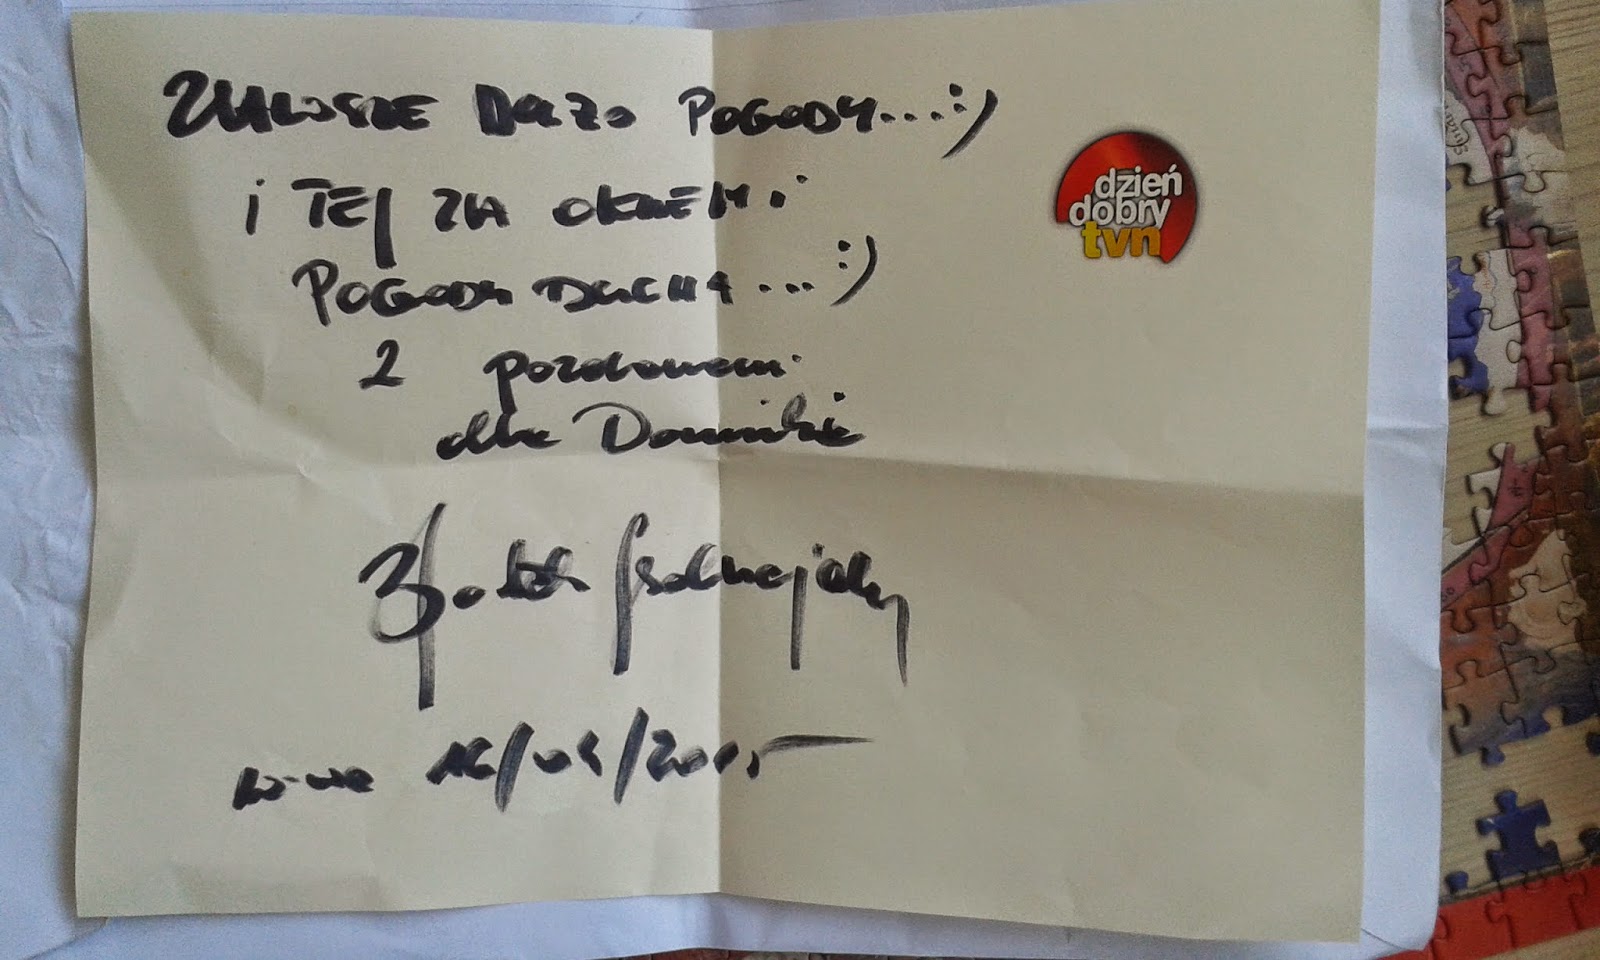 ZAWSZE DUŻO POGODY...:)
i TEJ ZA OKNEM i
POGODY DUCHA...:)
Z pozdrowieniami
dla Dominika
W-wa 16/04/2015
dzień
dobry
tvn